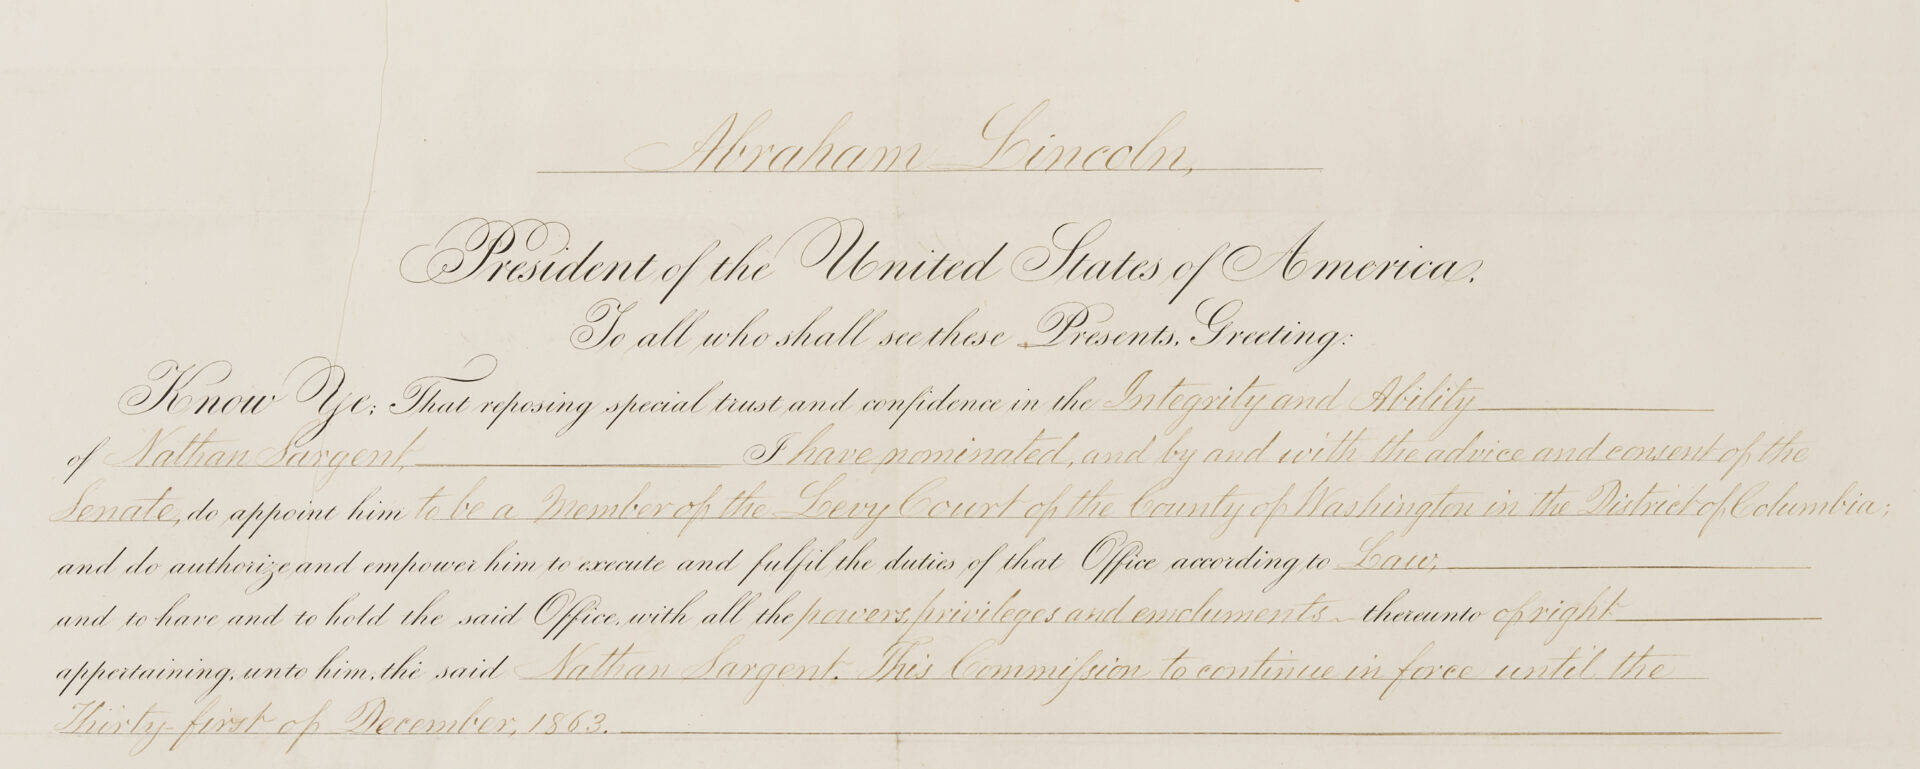 Abraham Lincoln,
President of the United States of America.
To all who shall see these Presents, Greeting:
Know Ye; That reposing special trust and confidence in the Integrity and Ability
of Nathan Sargent, I have nominated, and by and with the advice and consent of the
Senate, do appoint him to be a Member of the Levy Court of the County of Washington in the District of Columbia;
and do authorize and empower him to execute and fulfil the duties of that Office according to Law;
and to have and to hold the said Office, with all the powers, privileges and emoluments thereunto of right
appertaining, unto him, the said Nathan Sargent. This Commission to continue in force until the
Thirty-first of December, 1863.